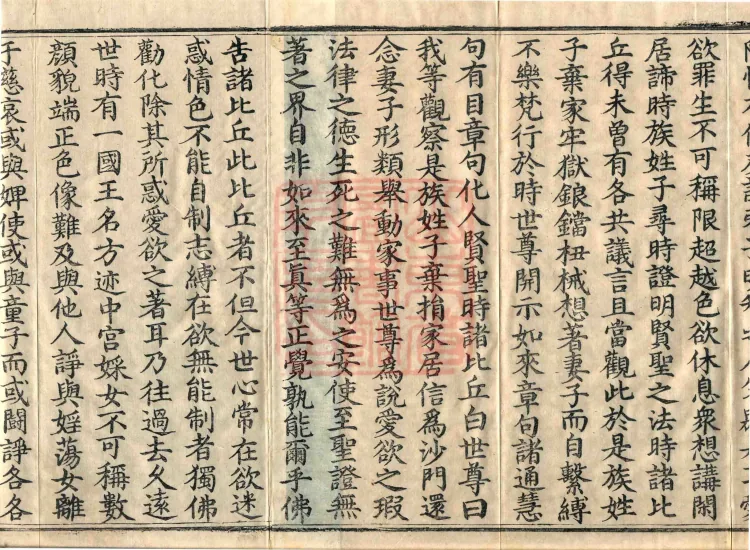 欲罪生不可稱限超越色欲休息衆想講閑
居諦時族姓子尋時證明賢聖之法時諸比
丘得未曾有各共議言且當觀此於是族姓
子棄家牢獄鋃鐺杻械想著妻子而自繫縛
不樂梵行於時世尊開示如來章句諸通慧
句有目章句化人賢聖時諸比丘白世尊曰
我等觀察是族姓子棄捐家居信爲沙門還
念妻子形類舉動家事世尊爲說愛欲之瑕
法律之德生死之難無爲之安使至聖證無
著之界自非如來至眞等正覺孰能爾乎佛
告諸比丘此比丘者不但今世心常在欲迷
惑情色不能自制志縛在欲無能制者獨佛
勸化除其所惑愛欲之著耳乃往過去久遠
世時有一國王名方迹中宮婇女不可稱數
顔貌端正色像難及與他人諍與婬蕩女離
于慈哀或與婢使或與童子而或鬪諍各各